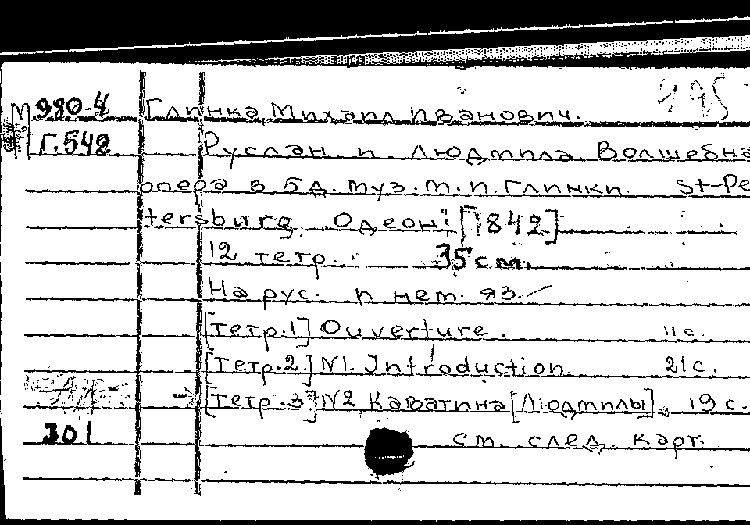 495
М 980-4 Глинка, Михаил Иванович.
Г.548 Руслан и Людмила. Волшебна
опера в 5д. муз. М.И. Глинки. St-Pe
tersburg, "Одеон" [1842]
12 тетр. 35 см.
На рус. и нем. яз.
[тетр.1] Ouverture. 11с.
[тетр.2] №1. Introduction. 21с.
[тетр.3] №2 Каватина [Людмилы]. 19с.
301 см. след. карт.